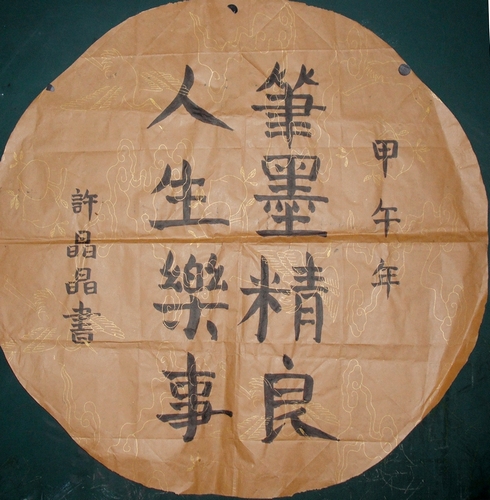 甲午年
筆墨精良
人生樂事
許晶晶書